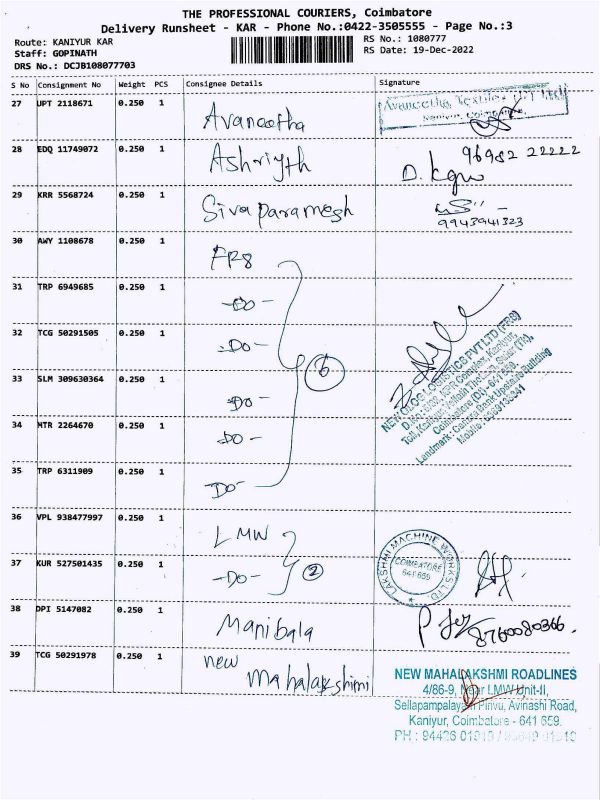 THE PROFESSIONAL COURIERS, Coimbatore
Delivery Runsheet - KAR - Phone No.:0422-3505555 - Page No.:3
Route: KANIYUR KAR
Staff: GOPINATH
DRS No.: DCJB108077703
RS No.: 1080777
RS Date: 19-Dec-2022
S No Consignment No Weight PCS Consignee Details Signature
27 UPT 2118671 0.250 1 Avaneetha
28 EDQ 11749072 0.250 1 Ashriyth 96982 22222
29 KRR 5568724 0.250 1 Sivaparamesh 9943941323
30 AWY 1108678 0.250 1 FRS
31 TRP 6949685 0.250 1 -Do-
32 TCG 50291505 0.250 1 -Do-
33 SLM 309630364 0.250 1 -Do- 6
34 MTR 2264670 0.250 1 -Do-
35 TRP 6311909 0.250 1 -Do-
NEW OLOG LOGISTICS PVT LTD (FRS)
Coimbatore (Dt) - 641 659.
Landmark : Canara Bank Upstairs Building
36 VPL 938477997 0.250 1 LMW
37 KUR 527501435 0.250 1 -Do- 2
LAKSHMI MACHINE WORKS LTD.
COIMBATORE
641 659
38 DPI 5147082 0.250 1 Manibala 8760080366
39 TCG 50291978 0.250 1 new Mahalakshimi
NEW MAHALAKSHMI ROADLINES
4/86-9, Near LMW Unit-II,
Sellapampalayam Pirivu, Avinashi Road,
Kaniyur, Coimbatore - 641 659.